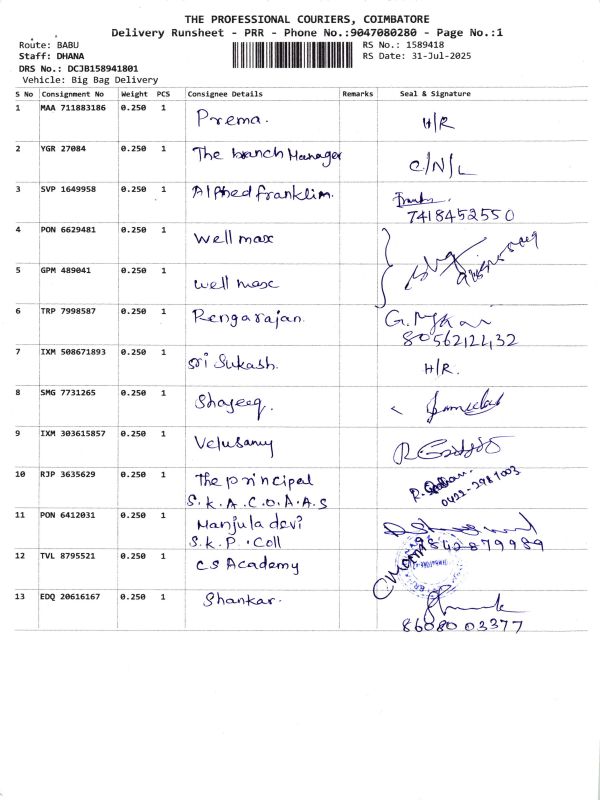 THE PROFESSIONAL COURIERS, COIMBATORE
Delivery Runsheet - PRR - Phone No.:9047080280 - Page No.:1
Route: BABU RS No.: 1589418
Staff: DHANA RS Date: 31-Jul-2025
DRS No.: DCJB158941801
Vehicle: Big Bag Delivery
S No Consignment No Weight PCS Consignee Details Remarks Seal & Signature
1 MAA 711883186 0.250 1 Prema. H/R
2 YGR 27084 0.250 1 The branch Manager C/N/L
3 SVP 1649958 0.250 1 Alphed franklim.
7418452550
4 PON 6629481 0.250 1 well max
5 GPM 489041 0.250 1 well max
6 TRP 7998587 0.250 1 Rengarajan.
7 IXM 508671893 0.250 1 Sri Sukash. H/R.
8 SMG 7731265 0.250 1 Shajeeq.
9 IXM 303615857 0.250 1 Velusamy
10 RJP 3635629 0.250 1 The principal
S.K.A.C.O.A.A.S
11 PON 6412031 0.250 1 Manjula devi
S.K.P. Coll 9842879989
12 TVL 8795521 0.250 1 CS Academy
13 EDQ 20616167 0.250 1 Shankar.
86080 03377